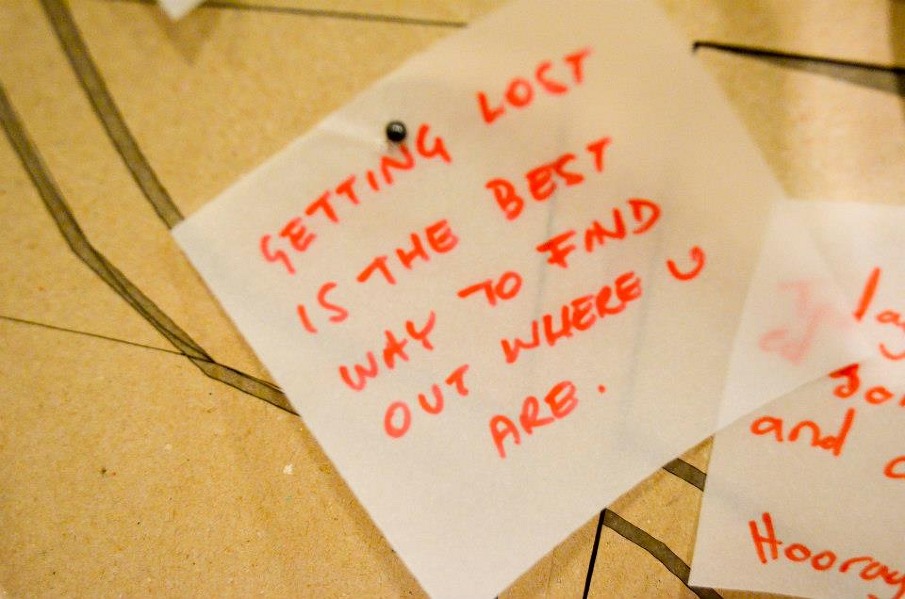 GETTING LOST
IS THE BEST
WAY TO FIND
OUT WHERE U
ARE.
and
Hooray